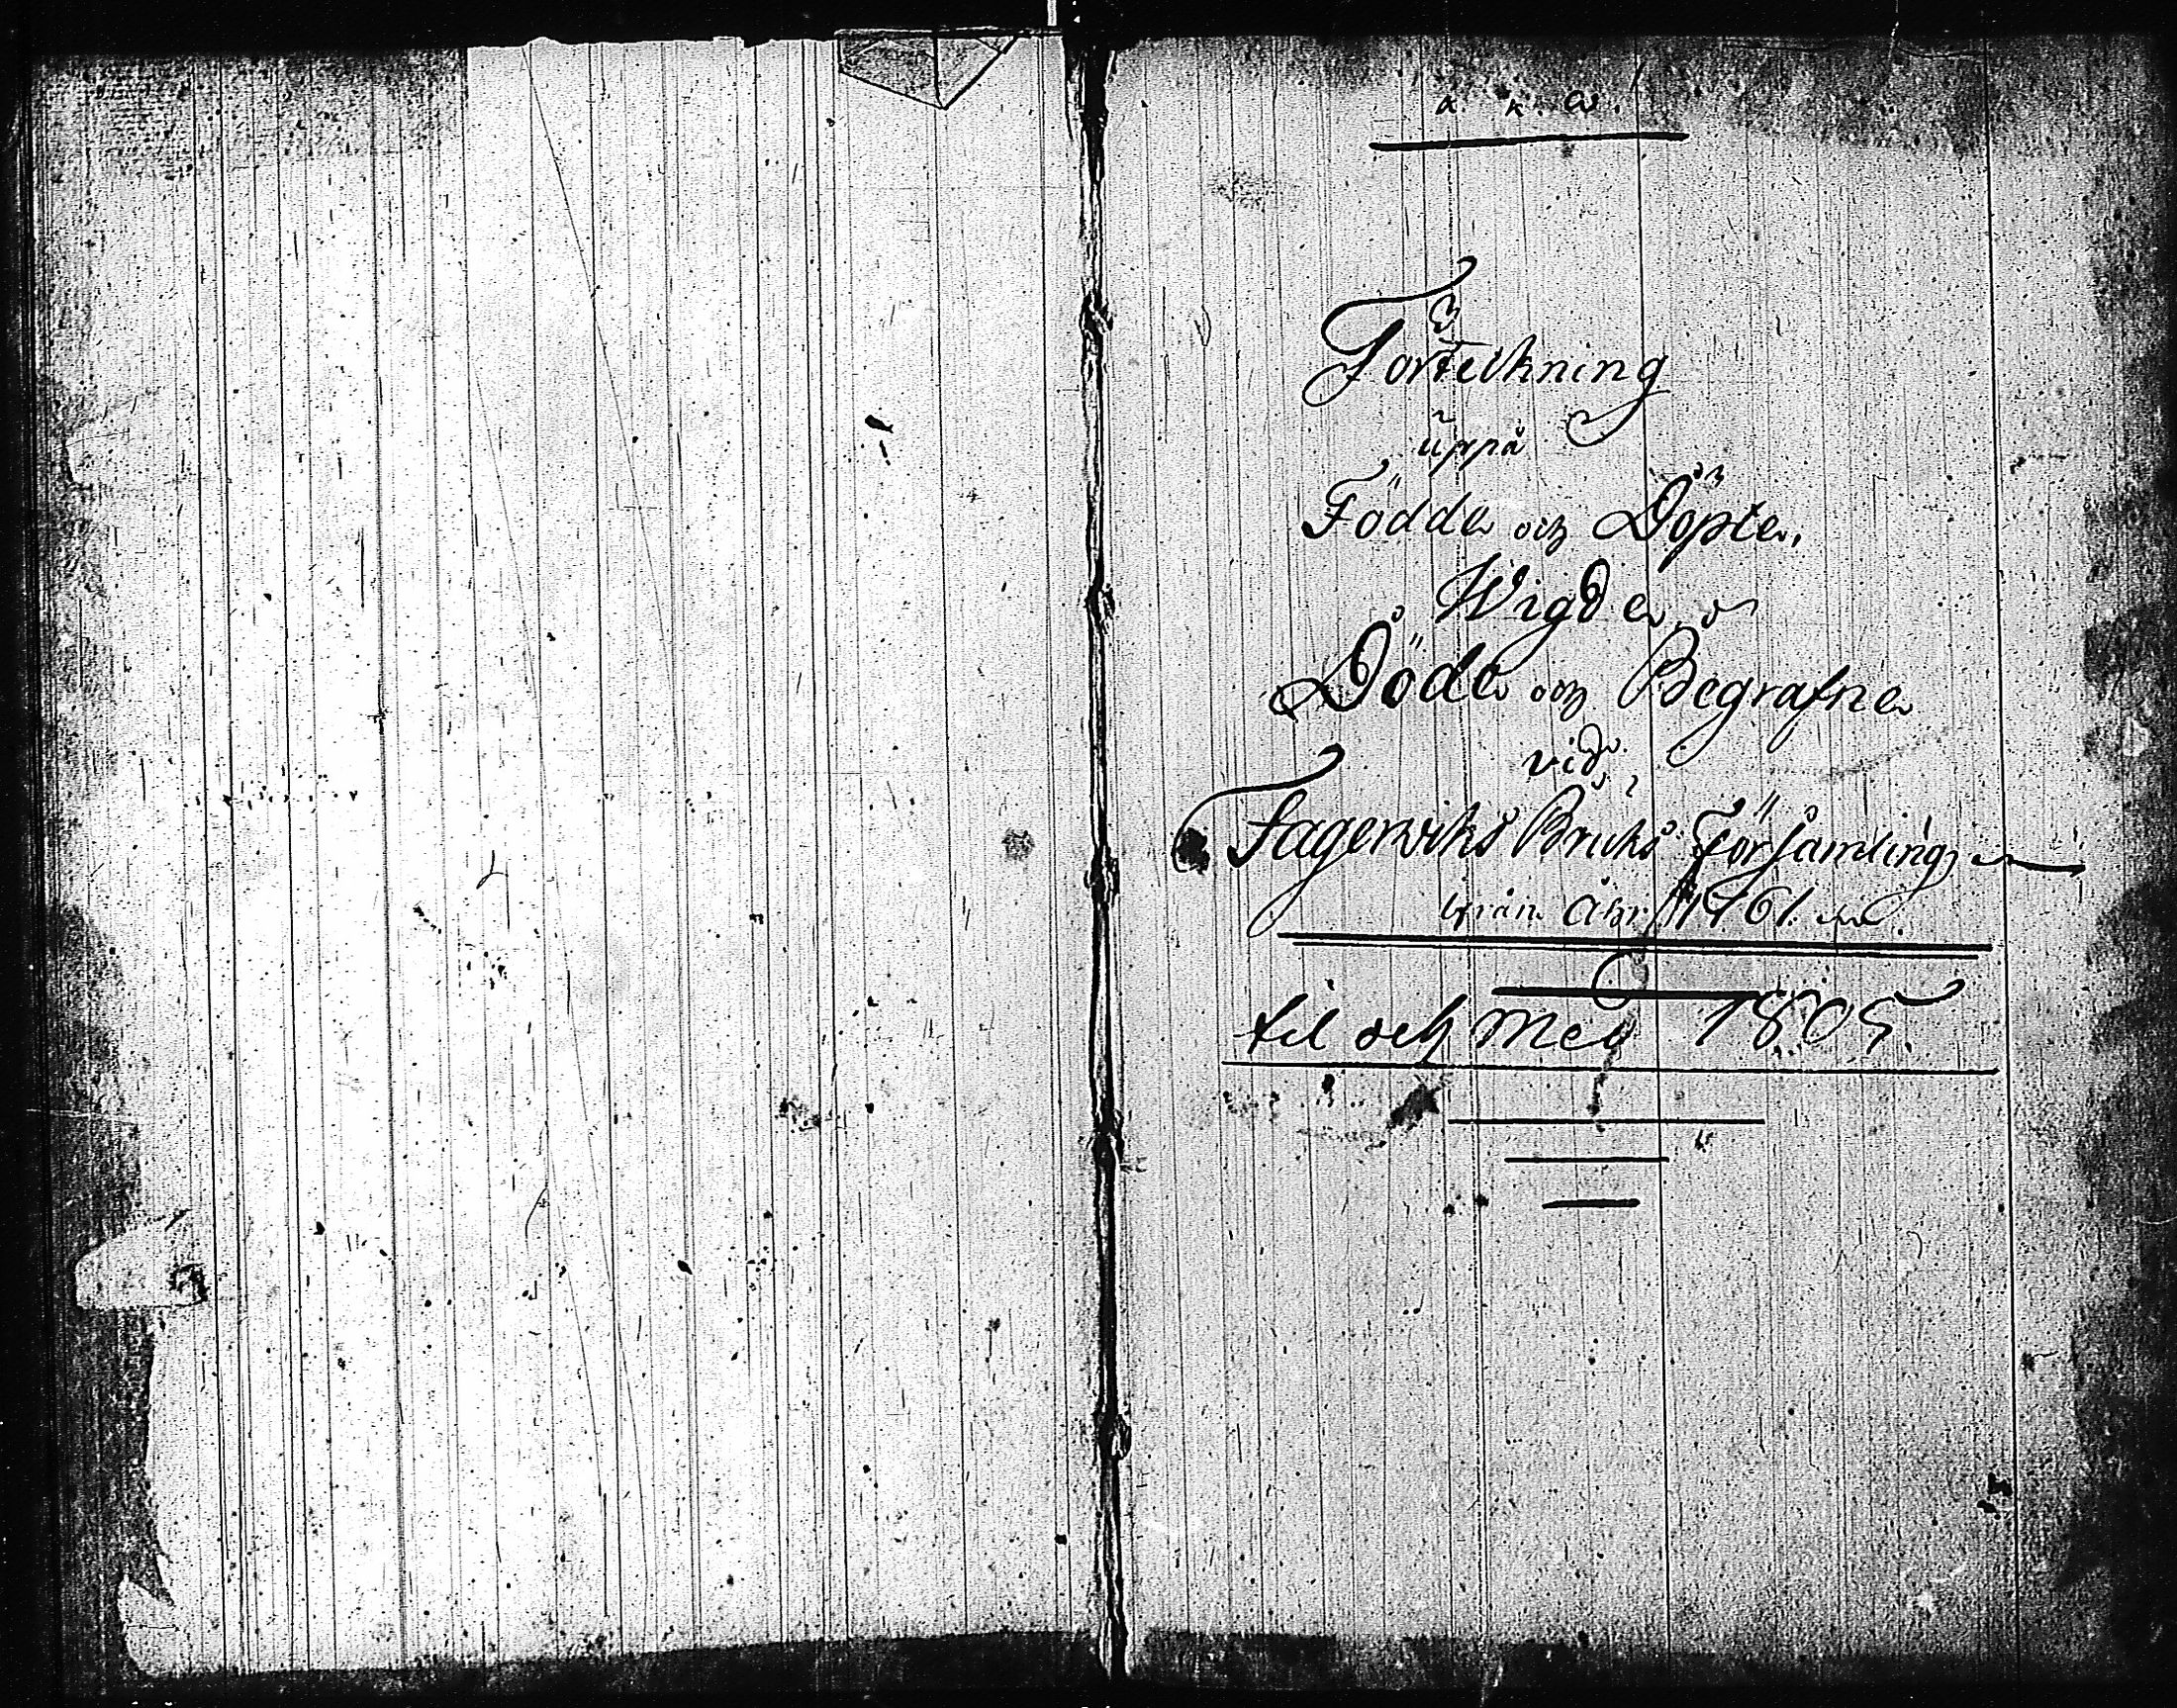 Förteikning
uppå
Födde och Döpte,
Wigde
Döde och Begrafne
vid
Fagerwiks Bruks Församling
ifrån Åhr 1761.
til och med 1805.